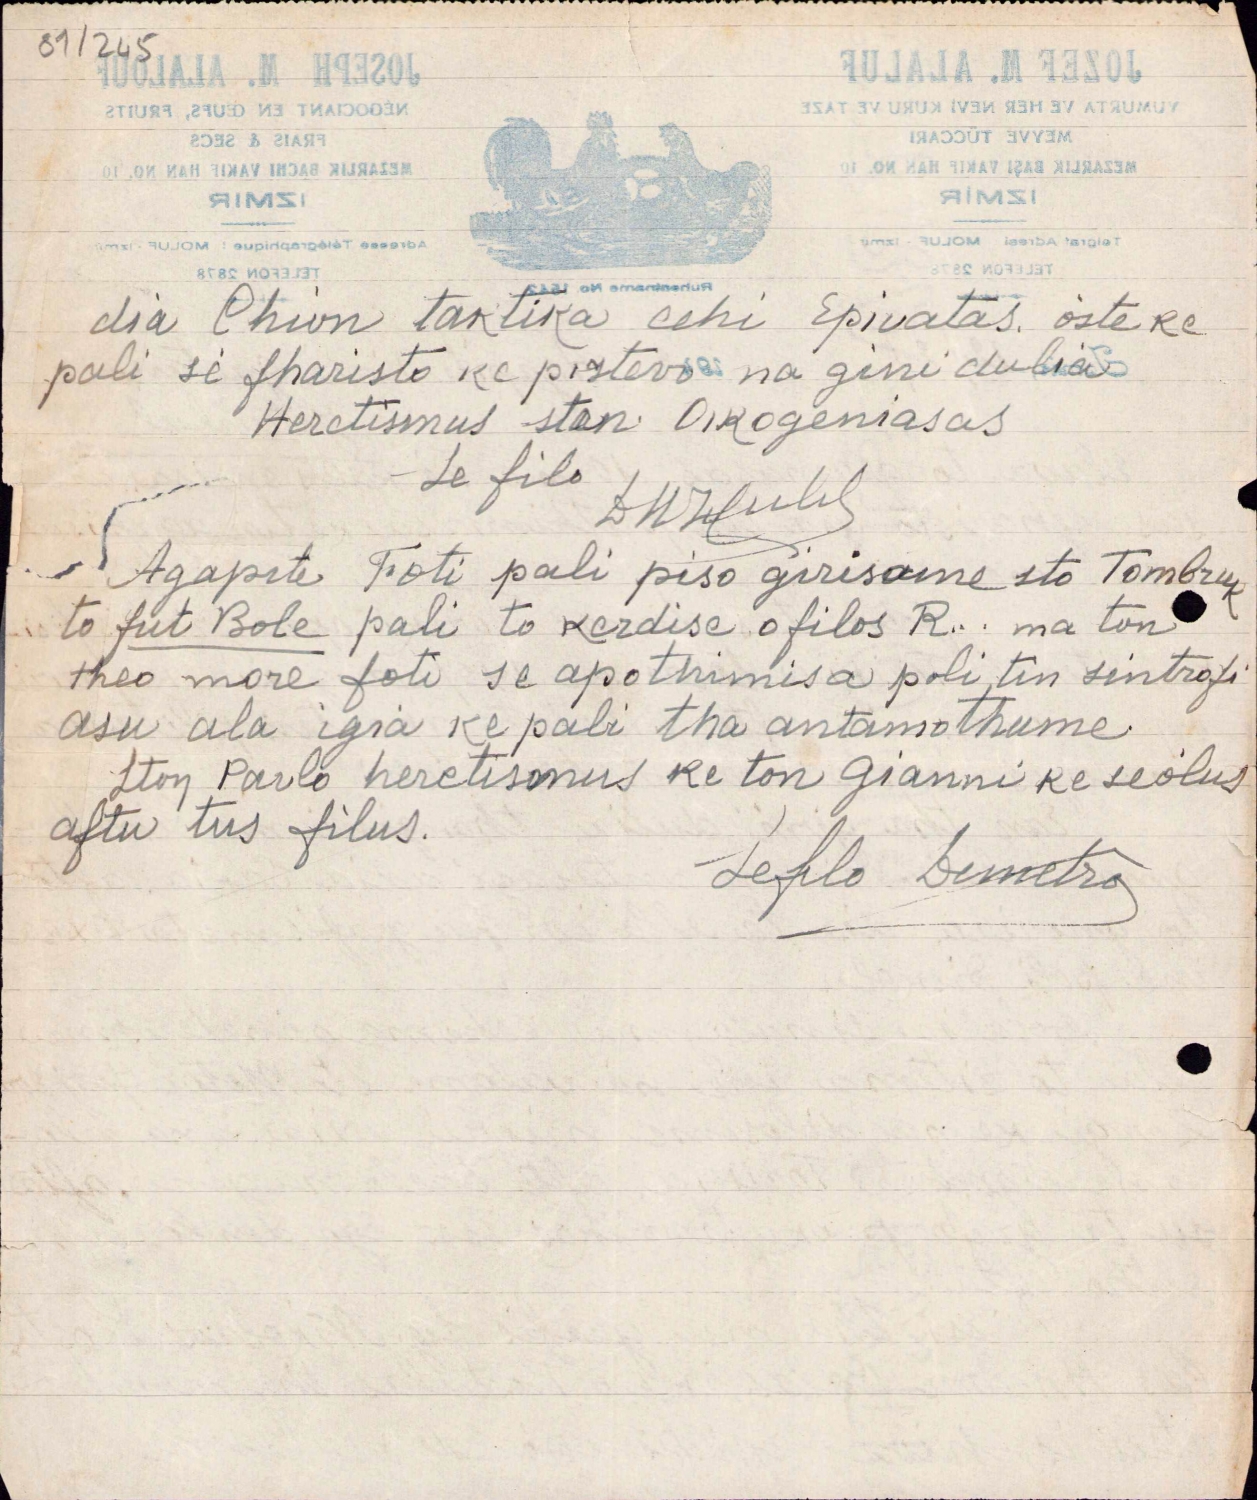 81/245
JOSEPH M. ALALOUF
NÉGOCIANT EN ŒUFS, FRUITS
FRAIS & SECS
MEZARLIK BACHI VAKIF HAN NO. 10
IZMIR
Adresse Télégraphique : MOLUF - Izmir
TELEFON 2878
JOZEF M. ALALUF
YUMURTA VE HER NEVİ KURU VE TAZE
MEYVE TÜCCARI
MEZARLIK BAŞI VAKIF HAN NO. 10
İZMİR
Telgraf Adresi MOLUF - Izmir
TELEFON 2878
Ruhsatname No. 1542
dia Chion taktika eehi Epivatas. oste ke
pali sé fharisto ke pistevo na gini dulia
Heretismus stan Oikogeniasas
Se filo
Agapite Foti pali piso girisame sto Tombruk
to fut Bole pali to kerdise o filos R... ma ton
theo more foti se apothimisa poli tin sintrofi
asu ala igia ke pali tha antamothume.
Ston Pavlo heretismus ke ton Gianni ke se olus
aftu tus filus.
Se filo Demetro